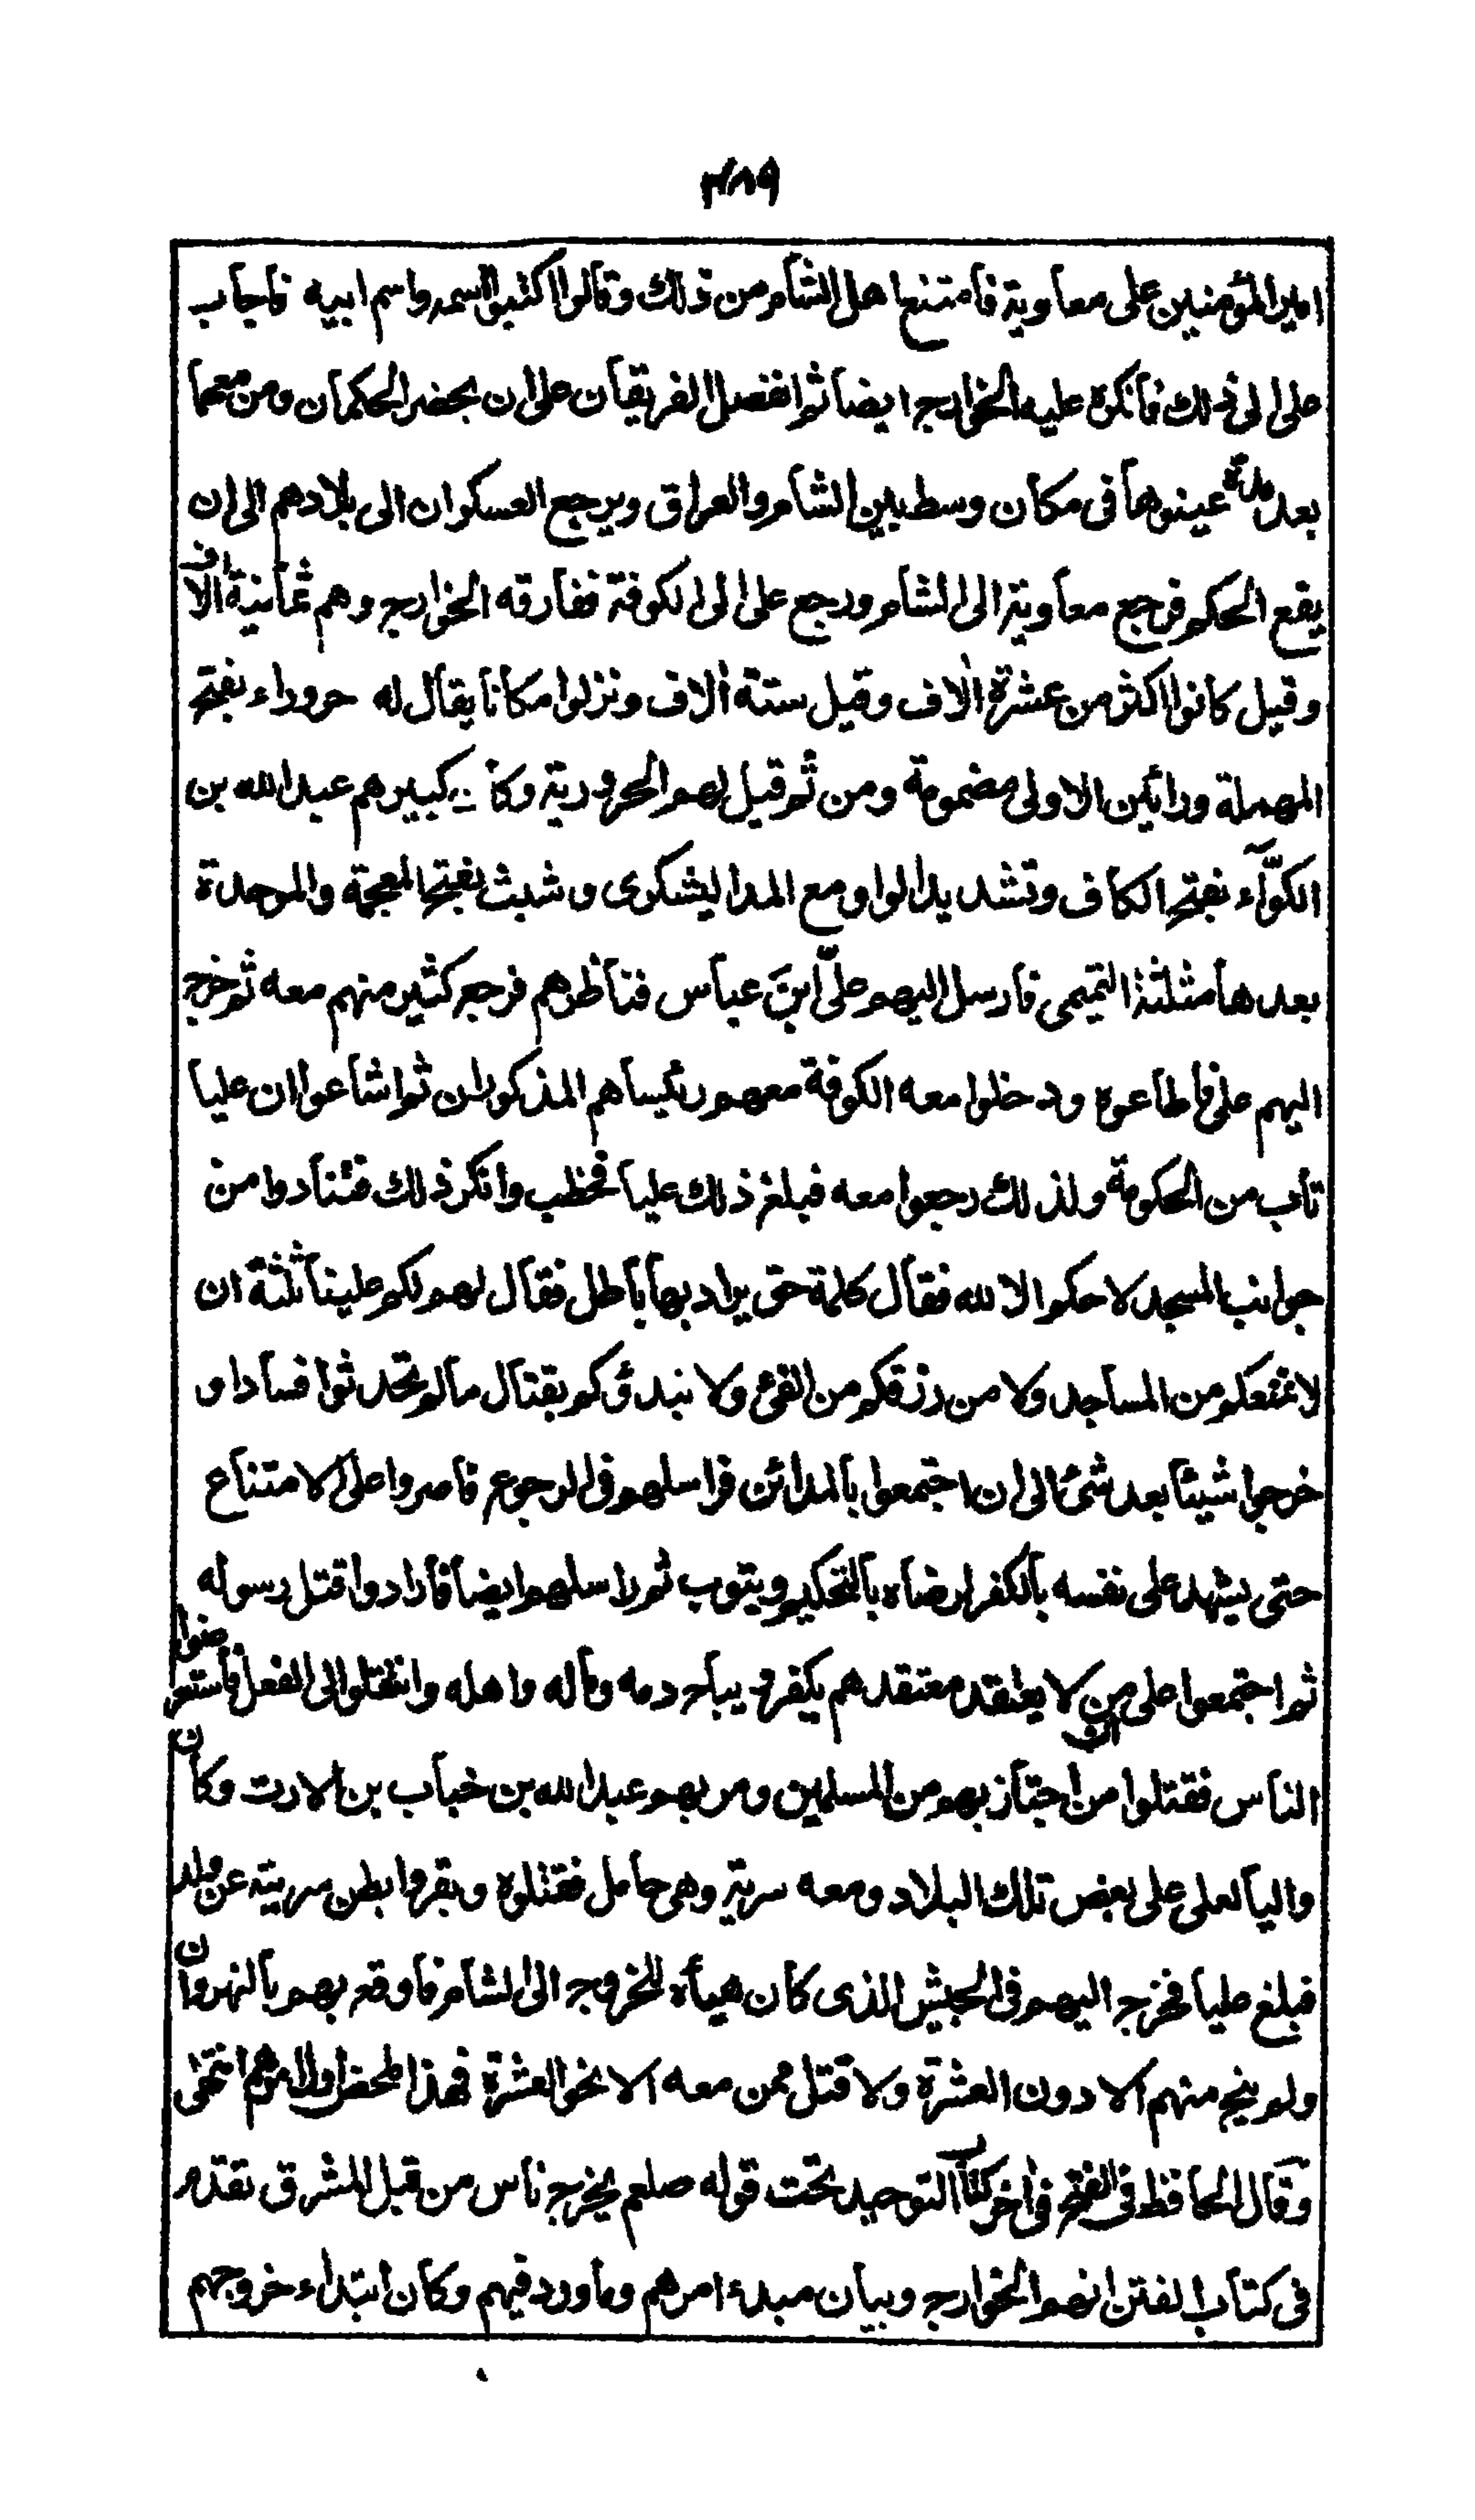 ٣٨٩
امير المؤمنين على معاوية فامتنع اهل الشام من ذلك وقالوا اكتبوا اسمه واسم ابيه فاجاب
على الى ذلك فانكره عليه الخوارج ايضا ثم انفصل الفريقان على ان يحضر الحكمان ومن معهما
بعد مدة عينوها فى مكان وسط بين الشام والعراق ويرجع العسكران الى بلادهم الى ان
يقع الحكم فرجع معاوية الى الشام ورجع على الى الكوفة ففارقه الخوارج وهم ثمانية الاف
وقيل كانوا اكثر من عشرة الاف وقيل ستة الاف ونزلوا مكانا يقال له حروراء بفتح
المهملة ورائين الاولى مضمومة ومن ثم قيل لهم الحرورية وكان كبيرهم عبد الله بن
الكوّآء بفتح الكاف وتشديد الواو مع المد اليشكرى وشبث بفتح المعجمة والموحدة
بعدها مثلثة التميمى فارسل اليهم علىّ ابنَ عباس فناظرهم فرجع كثير منهم معه ثم خرج
اليهم على فاطاعوه ودخلوا معه الكوفة معهم رئيساهم المذكوران ثم اشاعوا ان عليا
تاب من الحكومة ولذلك رجعوا معه فبلغ ذلك عليا فخطب وانكر ذلك فتنادوا من
جوانب المسجد لا حكم الا لله فقال كلمة حق يراد بها باطل فقال لهم لكم علينا ثلثة ان
لا نمنعكم من المساجد ولا من رزقكم من الفئ ولا نبدؤكم بقتال ما لم تحدثوا فسادا و
خرجوا شيئا بعد شئ الى ان اجتمعوا بالمدائن فراسلهم فى الرجوع فاصروا على الامتناع
حتى يشهد على نفسه بالكفر لرضاه بالتحكيم ويتوب ثم راسلهم ايضا فارادوا قتل رسوله
ثم اجتمعوا على ان من لا يعتقد معتقدهم يكفر ويباح دمه وماله واهله وانتقلوا الى الفعل فاستعرضوا
الناس فقتلوا من اجتاز بهم من المسلمين ومر بهم عبد الله بن خباب بن الارت وكان
واليا لعلى على بعض تلك البلاد ومعه سرية وهى حامل فقتلوه وبقروا بطن سريته عن ولد
فبلغ عليا فخرج اليهم فى الجيش الذى كان هيأه للخروج الى الشام فاوقع بهم بالنهروان
ولم ينج منهم الا دون العشرة ولا قتل ممن معه الا نحو العشرة فهذا ملخص اول امرهم انتهى
وقال الحافظ فى الفتح فى اخر كتاب التوحيد تحت قوله صلعم يخرج ناس من قبل المشرق تقدم
فى كتاب الفتن انهم الخوارج وبيان مبدء امرهم وما ورد فيهم وكان ابتداء خروجهم